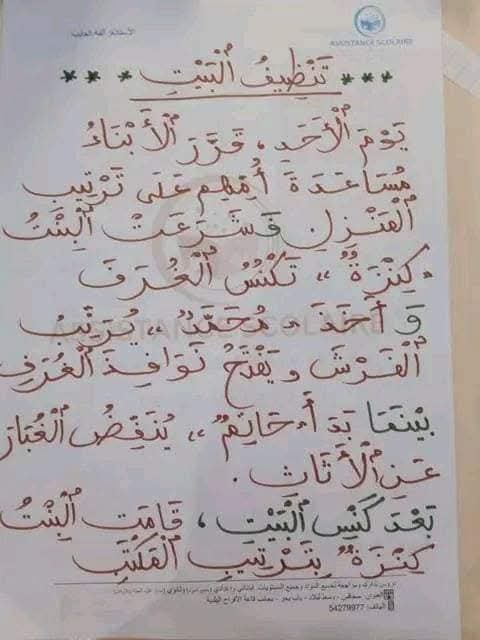 ASSISTANCE SCOLAIRE
*** تَنْظِيفُ الْبَيْتِ ***
يَوْمَ الْأَحَدِ، قَرَّرَ الْأَبْنَاءُ
مُسَاعَدَةَ أُمِّهِم عَلَى تَرْتِيبِ
الْمَنْزِلِ فَشَرَعَتْ الْبِنْتُ
"كِنْزَةُ" تَكْنُسُ الْغُرَفَ
وَ أَخَذَ "مُحَمَّدٌ" يُرَتِّبُ
الْفَرْشَ وَيَفْتَحُ نَوَافِذَ الْغُرَفِ
بَيْنَمَا بَدَأَ "حَاتِمٌ" يُنَفِّضُ الْغُبَارَ
عَنِ الْأَثَاثِ.
بَعْدَ كَنْسِ الْبَيْتِ، قَامَتِ الْبِنْتُ
كِنْزَةُ بِتَرْتِيبِ الْمَكْتَبِ
ASSISTANCE SCOLAIRE
الهاتف: 54279977